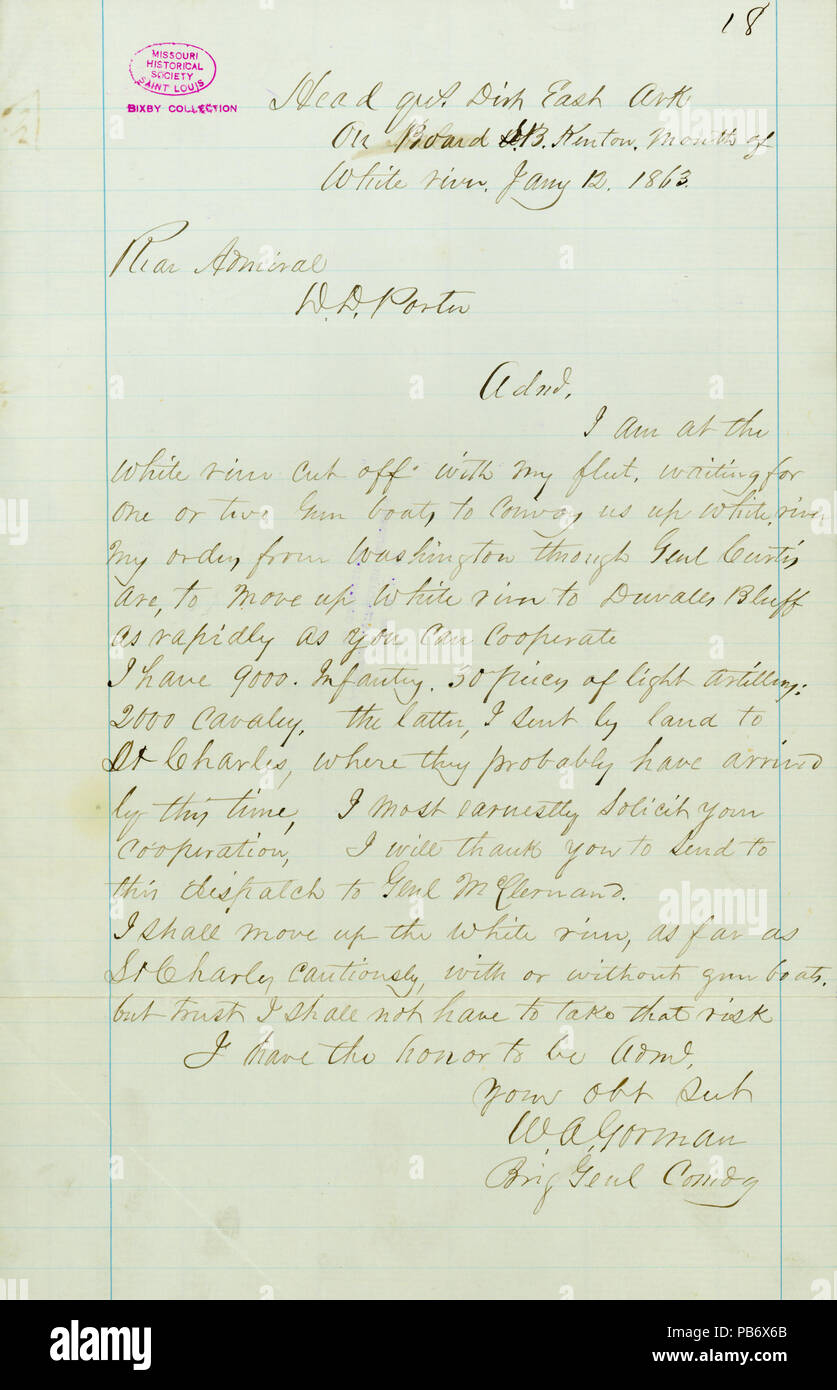 18
MISSOURI
HISTORICAL
SOCIETY
SAINT LOUIS
BIXBY COLLECTION
Head qrs. Dist East Ark
On Board S.B. Kenton. Mouth of
White river. Jany 12. 1863.
Rear Admiral
D. D. Porter
Adml.
I am at the
White river cut off with my fleet, waiting for
one or two Gun boats to convoy us up White river
My orders from Washington through Genl Curtis
are, to move up White river to Duvalls Bluff
as rapidly as you can cooperate
I have 9000. Infantry. 30 pieces of light Artillery:
2000 Cavaley, the latter, I sent by land to
St Charles, where they probably have arrived
by this time, I most earnestly solicit your
cooperation, I will thank you to send to
this dispatch to Genl McClernand.
I shall move up the White river, as far as
St Charles cautiously, with or without gun boats.
but trust I shall not have to take that risk
I have the honor to be Adml.
your obt Svt
W. A. Gorman
Brig Genl Comdg
alamy
Image ID: PB7X6B
www.alamy.com